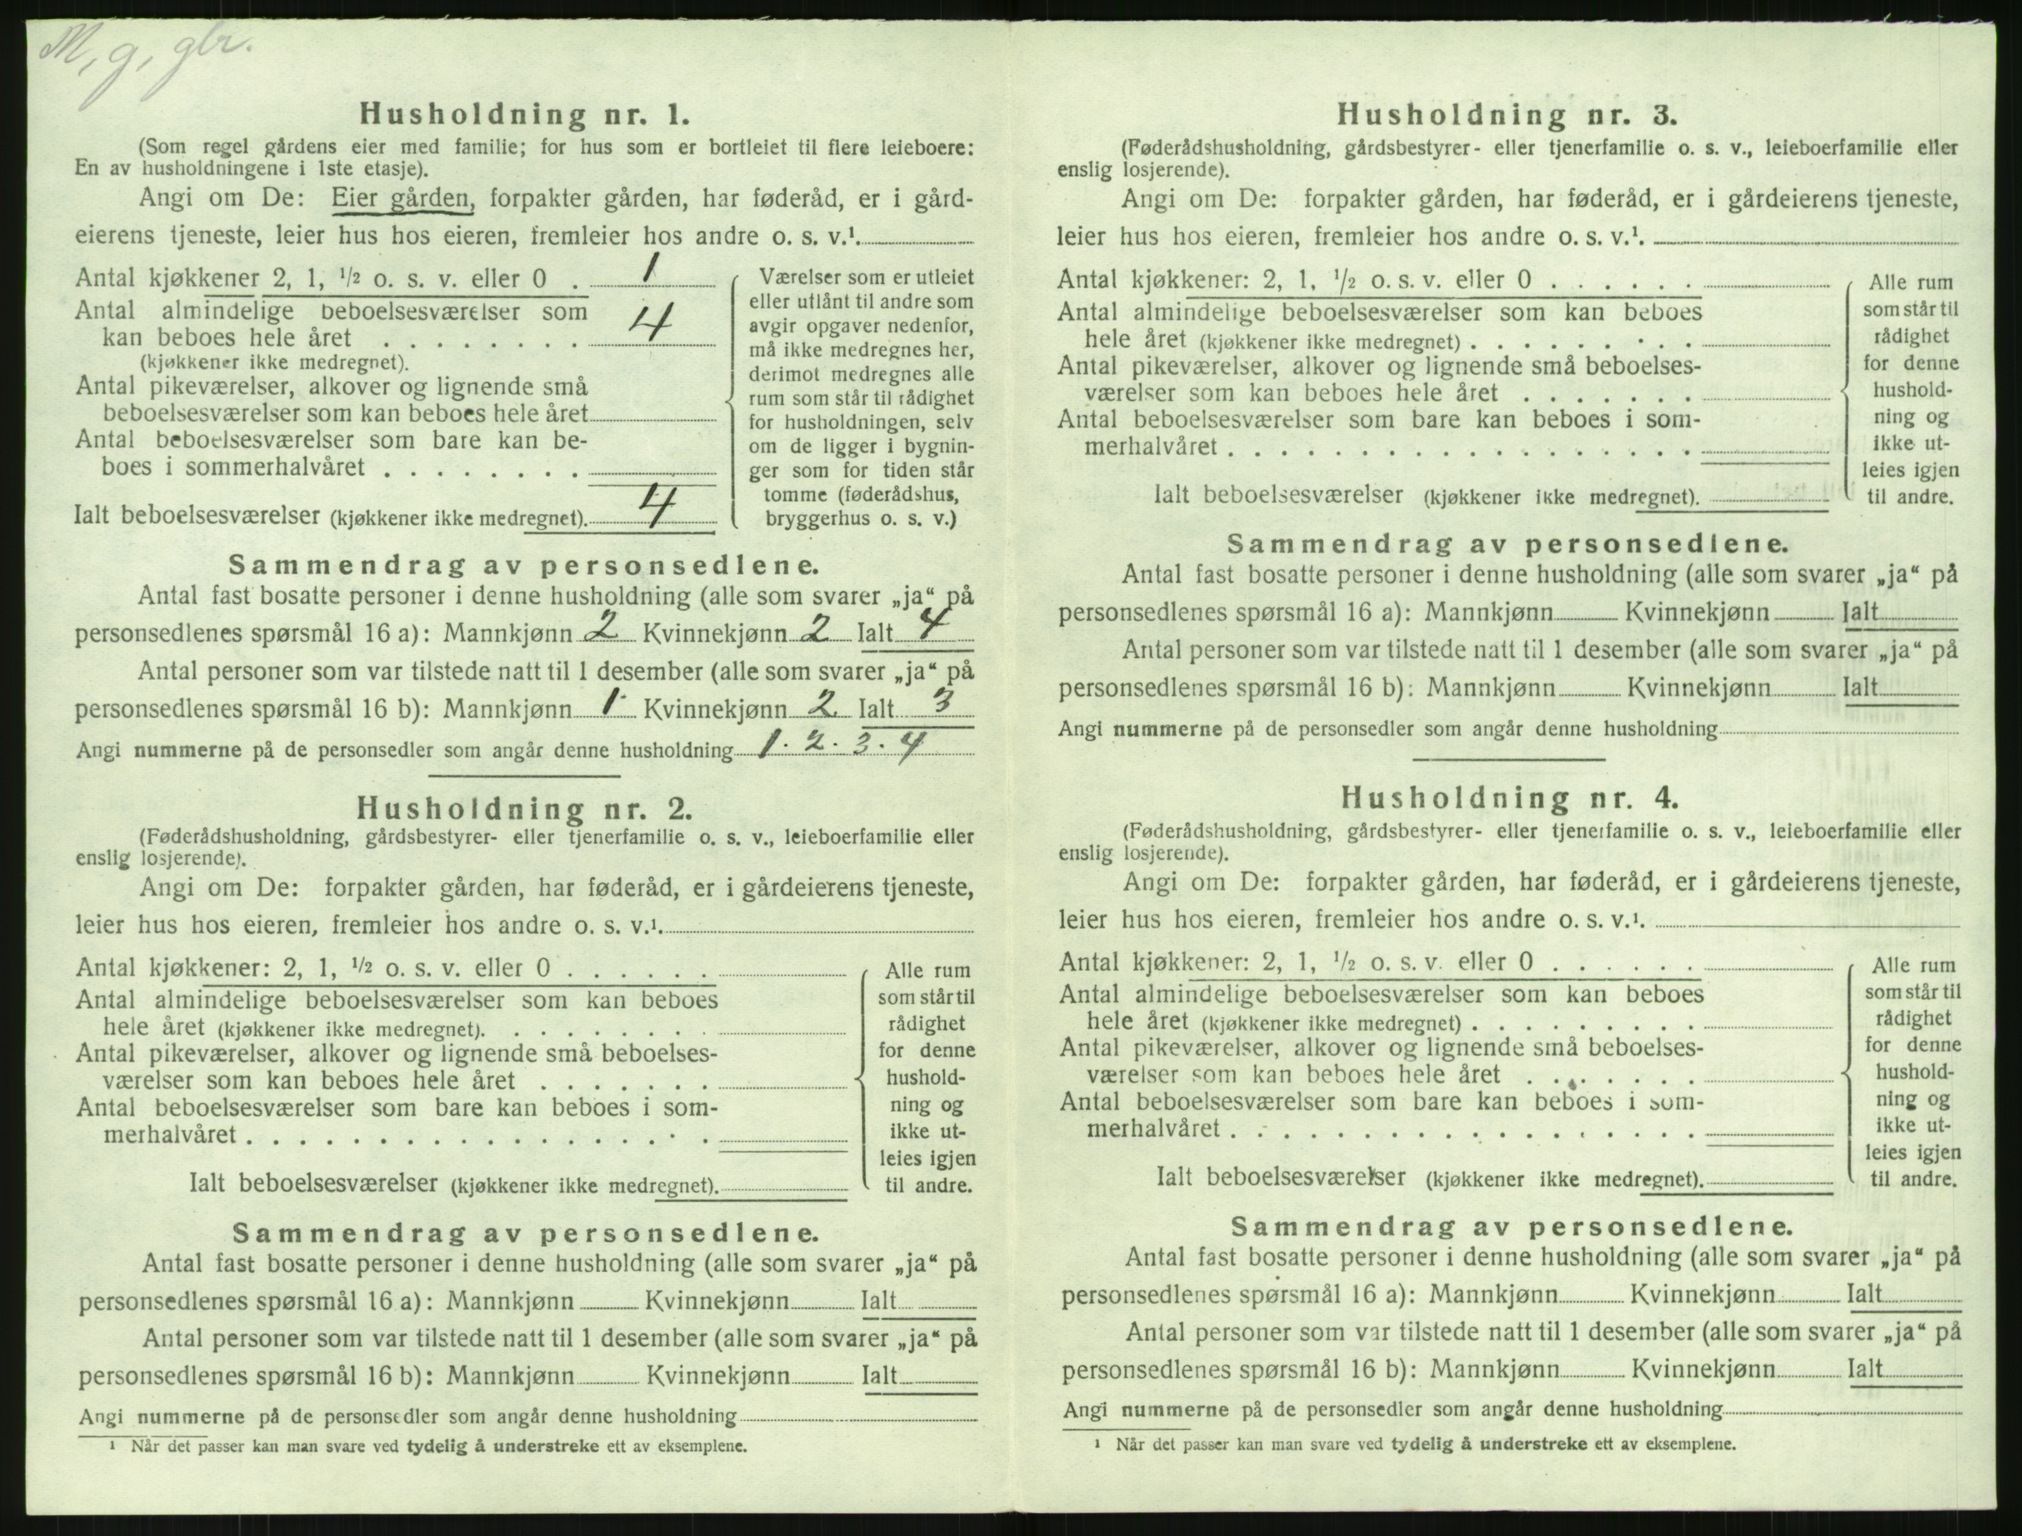 M, g, gbr.
Husholdning nr. 1.
(Som regel gårdens eier med familie; for hus som er bortleiet til flere leieboere:
En av husholdningene i 1ste etasje).
Angi om De: Eier gården, forpakter gården, har føderåd, er i gård-
eierens tjeneste, leier hus hos eieren, fremleier hos andre o. s. v.¹.
Antal kjøkkener 2, 1, ½ o. s. v. eller 0 . 1
Antal almindelige beboelsesværelser som
kan beboes hele året . . . . . . . . 4
(kjøkkener ikke medregnet).
Antal pikeværelser, alkover og lignende små
beboelsesværelser som kan beboes hele året
Antal beboelsesværelser som bare kan be-
boes i sommerhalvåret . . . . . . . .
Ialt beboelsesværelser (kjøkkener ikke medregnet). 4
Værelser som er utleiet
eller utlånt til andre som
avgir opgaver nedenfor,
må ikke medregnes her,
derimot medregnes alle
rum som står til rådighet
for husholdningen, selv
om de ligger i bygnin-
ger som for tiden står
tomme (føderådshus,
bryggerhus o. s. v.)
Sammendrag av personsedlene.
Antal fast bosatte personer i denne husholdning (alle som svarer „ja“ på
personsedlenes spørsmål 16 a): Mannkjønn 2 Kvinnekjønn 2 Ialt 4
Antal personer som var tilstede natt til 1 desember (alle som svarer „ja“ på
personsedlenes spørsmål 16 b): Mannkjønn 1 Kvinnekjønn 2 Ialt 3
Angi nummerne på de personsedler som angår denne husholdning 1. 2. 3. 4
Husholdning nr. 2.
(Føderådshusholdning, gårdsbestyrer- eller tjenerfamilie o. s. v., leieboerfamilie eller
enslig losjerende).
Angi om De: forpakter gården, har føderåd, er i gårdeierens tjeneste,
leier hus hos eieren, fremleier hos andre o. s. v.¹.
Antal kjøkkener: 2, 1, ½ o. s. v. eller 0 . . . . . .
Antal almindelige beboelsesværelser som kan beboes
hele året (kjøkkener ikke medregnet). . . . . . . . .
Antal pikeværelser, alkover og lignende små beboelses-
værelser som kan beboes hele året . . . . . . .
Antal beboelsesværelser som bare kan beboes i som-
merhalvåret . . . . . . . . . . . . . . . . . .
Ialt beboelsesværelser (kjøkkener ikke medregnet).
Alle rum
som står til
rådighet
for denne
hushold-
ning og
ikke ut-
leies igjen
til andre.
Sammendrag av personsedlene.
Antal fast bosatte personer i denne husholdning (alle som svarer „ja“ på
personsedlenes spørsmål 16 a): Mannkjønn Kvinnekjønn Ialt
Antal personer som var tilstede natt til 1 desember (alle som svarer „ja“ på
personsedlenes spørsmål 16 b): Mannkjønn Kvinnekjønn Ialt
Angi nummerne på de personsedler som angår denne husholdning
¹ Når det passer kan man svare ved tydelig å understreke ett av eksemplene.
Husholdning nr. 3.
(Føderådshusholdning, gårdsbestyrer- eller tjenerfamilie o. s. v., leieboerfamilie eller
enslig losjerende).
Angi om De: forpakter gården, har føderåd, er i gårdeierens tjeneste,
leier hus hos eieren, fremleier hos andre o. s. v.¹.
Antal kjøkkener: 2, 1, ½ o. s. v. eller 0 . . . . . .
Antal almindelige beboelsesværelser som kan beboes
hele året (kjøkkener ikke medregnet) . . . . . . . . .
Antal pikeværelser, alkover og lignende små beboelses-
værelser som kan beboes hele året . . . . . . .
Antal beboelsesværelser som bare kan beboes i som-
merhalvåret . . . . . . . . . . . . . . . . . .
Ialt beboelsesværelser (kjøkkener ikke medregnet).
Alle rum
som står til
rådighet
for denne
hushold-
ning og
ikke ut-
leies igjen
til andre.
Sammendrag av personsedlene.
Antal fast bosatte personer i denne husholdning (alle som svarer „ja“ på
personsedlenes spørsmål 16 a): Mannkjønn Kvinnekjønn Ialt
Antal personer som var tilstede natt til 1 desember (alle som svarer „ja“ på
personsedlenes spørsmål 16 b): Mannkjønn Kvinnekjønn Ialt
Angi nummerne på de personsedler som angår denne husholdning
Husholdning nr. 4.
(Føderådshusholdning, gårdsbestyrer- eller tjenerfamilie o. s. v., leieboerfamilie eller
enslig losjerende).
Angi om De: forpakter gården, har føderåd, er i gårdeierens tjeneste,
leier hus hos eieren, fremleier hos andre o. s. v.¹.
Antal kjøkkener: 2, 1, ½ o. s. v. eller 0 . . . . . .
Antal almindelige beboelsesværelser som kan beboes
hele året (kjøkkener ikke medregnet) . . . . . . . . .
Antal pikeværelser, alkover og lignende små beboelses-
værelser som kan beboes hele året . . . . . . .
Antal beboelsesværelser som bare kan beboes i som-
merhalvåret . . . . . . . . . . . . . . . . . .
Ialt beboelsesværelser (kjøkkener ikke medregnet).
Alle rum
som står til
rådighet
for denne
hushold-
ning og
ikke ut-
leies igjen
til andre.
Sammendrag av personsedlene.
Antal fast bosatte personer i denne husholdning (alle som svarer „ja“ på
personsedlenes spørsmål 16 a): Mannkjønn Kvinnekjønn Ialt
Antal personer som var tilstede natt til 1 desember (alle som svarer „ja“ på
personsedlenes spørsmål 16 b): Mannkjønn Kvinnekjønn Ialt
Angi nummerne på de personsedler som angår denne husholdning
¹ Når det passer kan man svare ved tydelig å understreke ett av eksemplene.